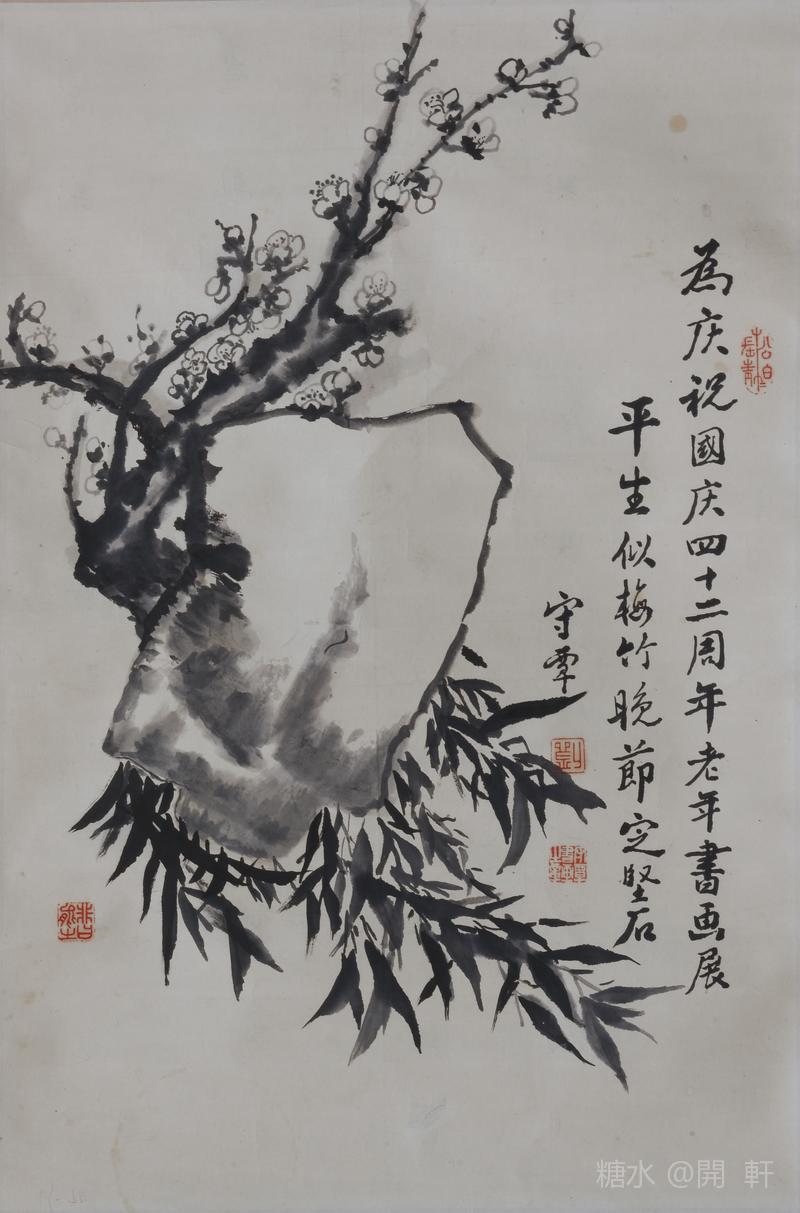 为庆祝國庆四十二周年老年書画展
平生似梅竹晚節定堅石
守覃
糖水 @開 軒